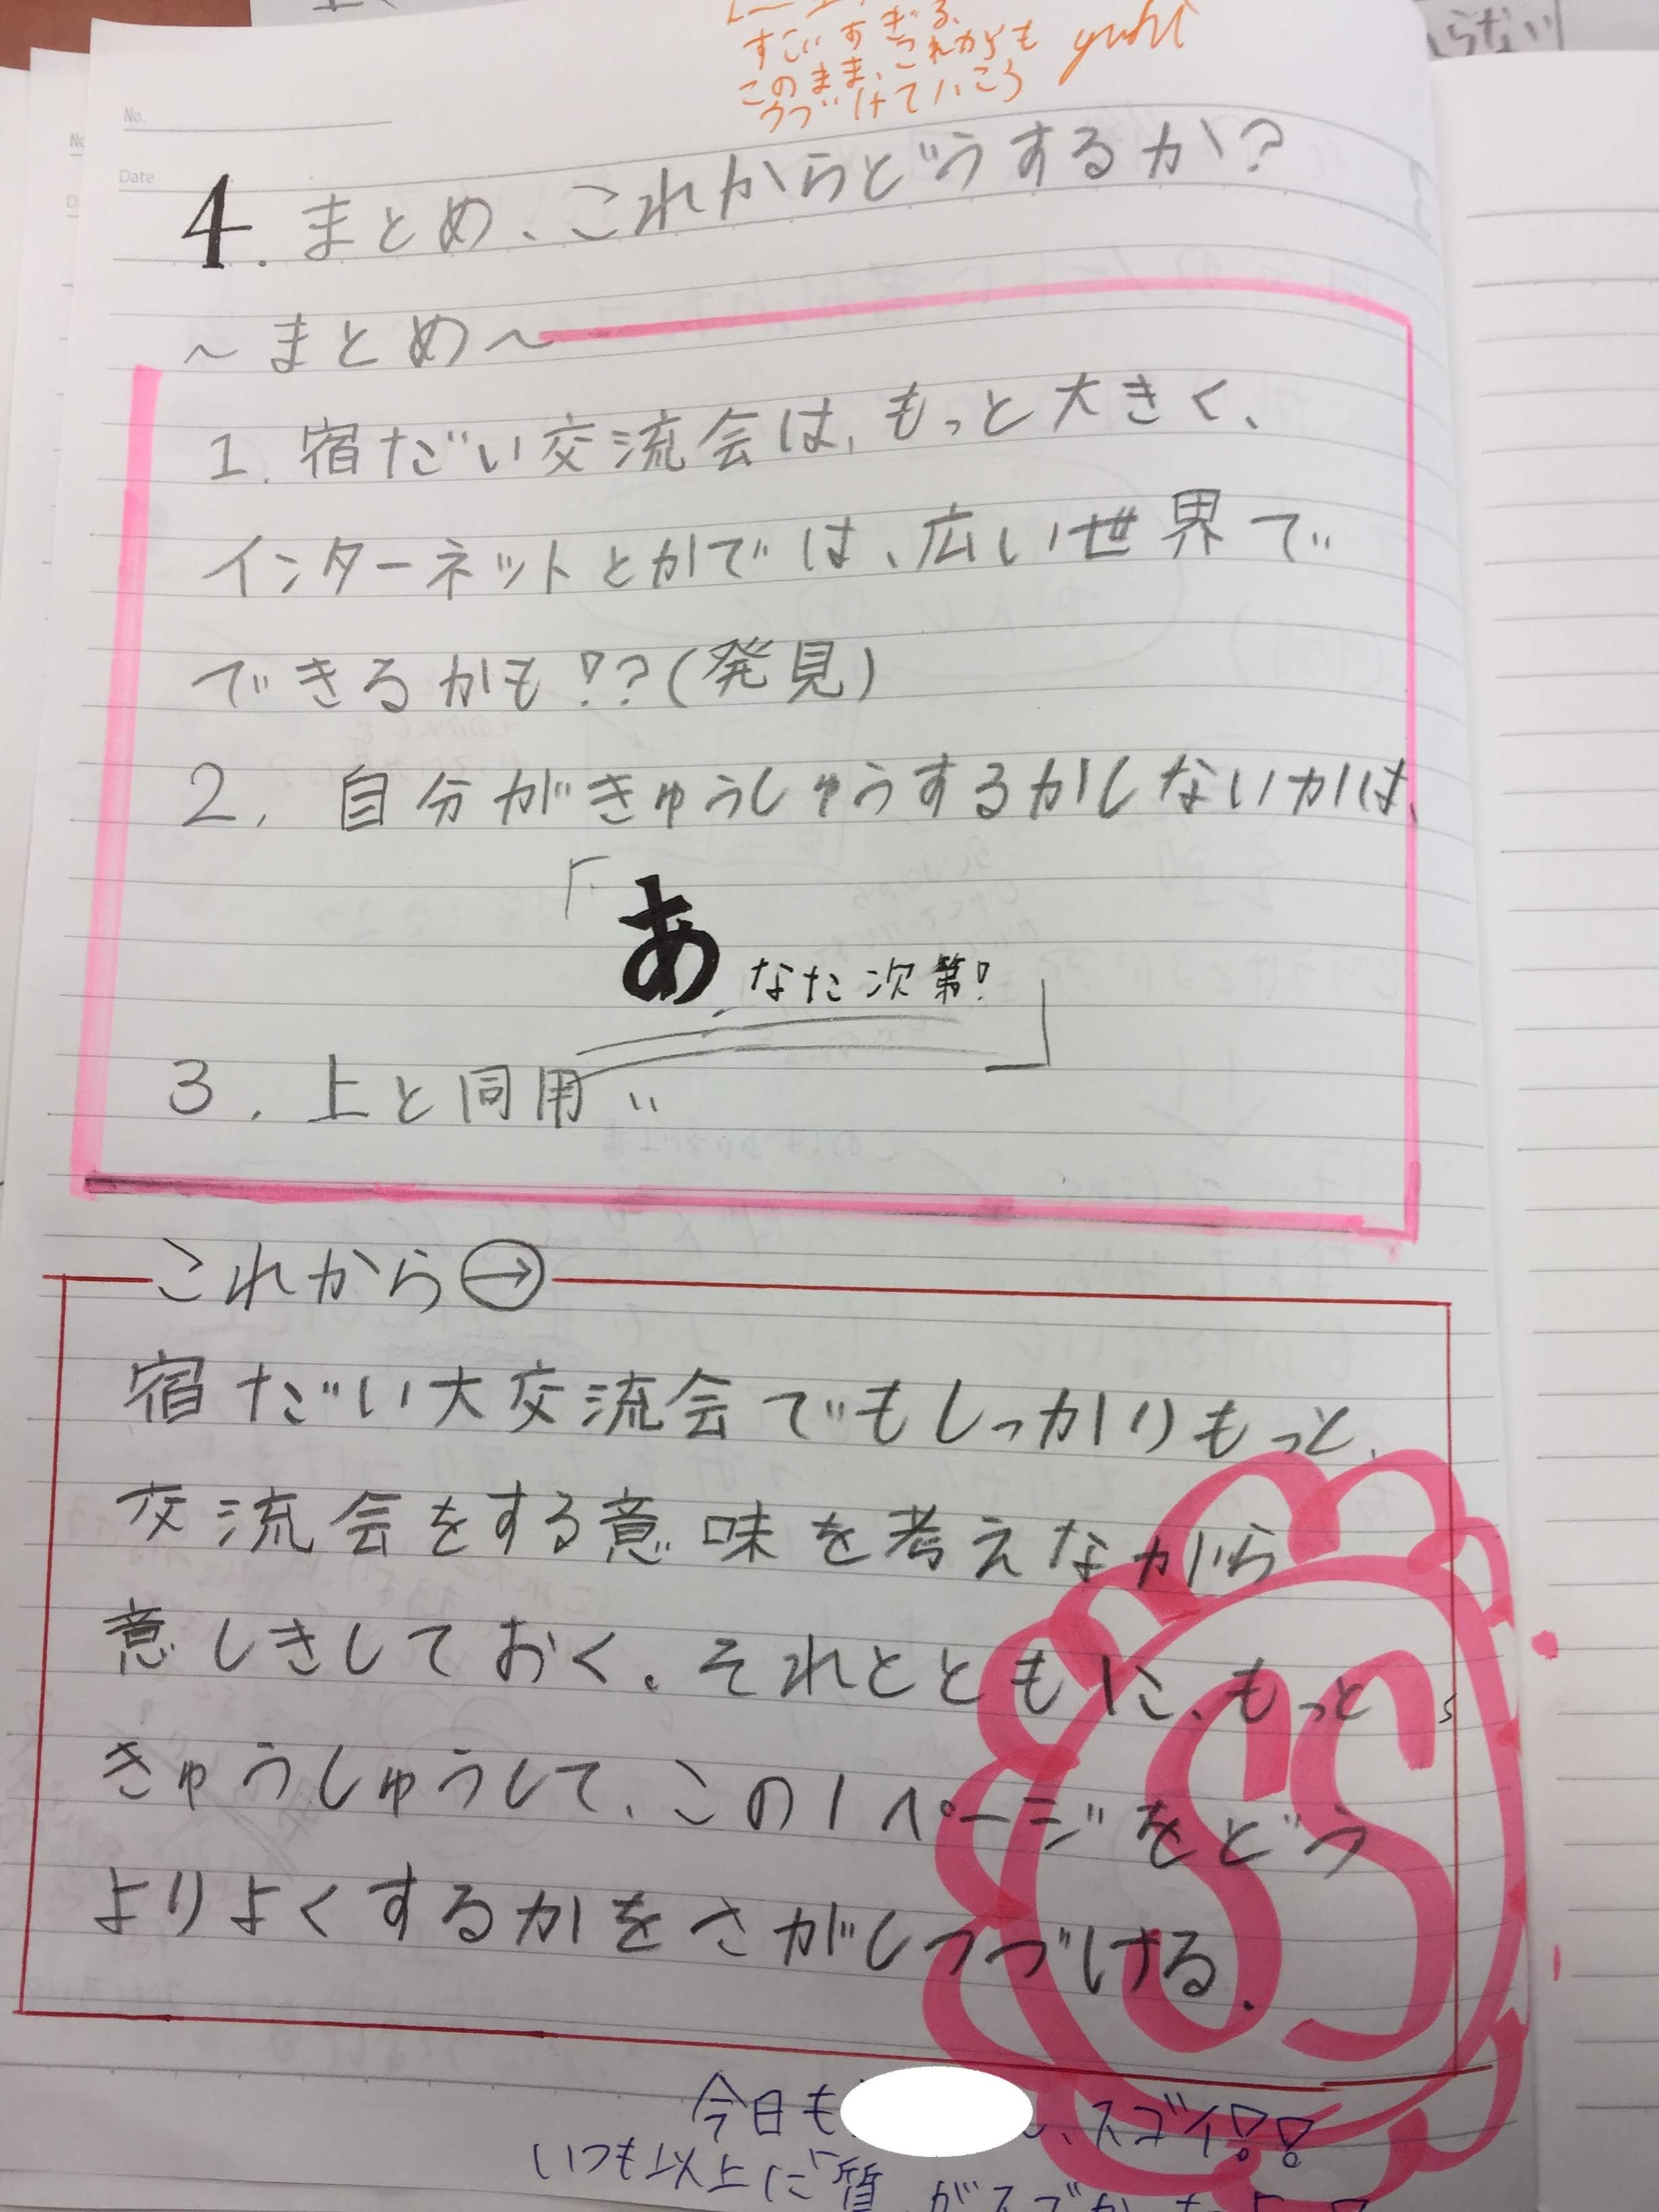 すごいすぎる、
このまま、これからも
つづけていこう
yuki
らない
No.
Date
4. まとめ、これからどうするか?
～まとめ～
1. 宿だい交流会は、もっと大きく、
インターネットとかでは、広い世界で
できるかも!?(発見)
2. 自分がきゅうしゅうするかしないかは、
「あなた次第!」
3. 上と同用‥
これから→
宿だい大交流会でもしっかりもっと、
交流会をする意味を考えながら
意しきしておく。それとともに、もっと
きゅうしゅうして、この1ページをどう
よりよくするかをさがしつづける。
SS
今日も
、スゴイ!!
いつも以上に質が